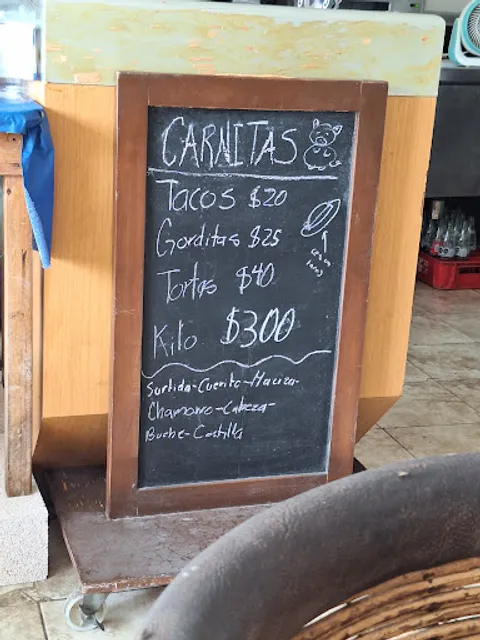 CARNITAS
Tacos $20
Gorditas $25
Tortas $40
Kilo $300
Surtida-Cuerito-Maciza-
Chamorro-Cabeza-
Buche-Costilla